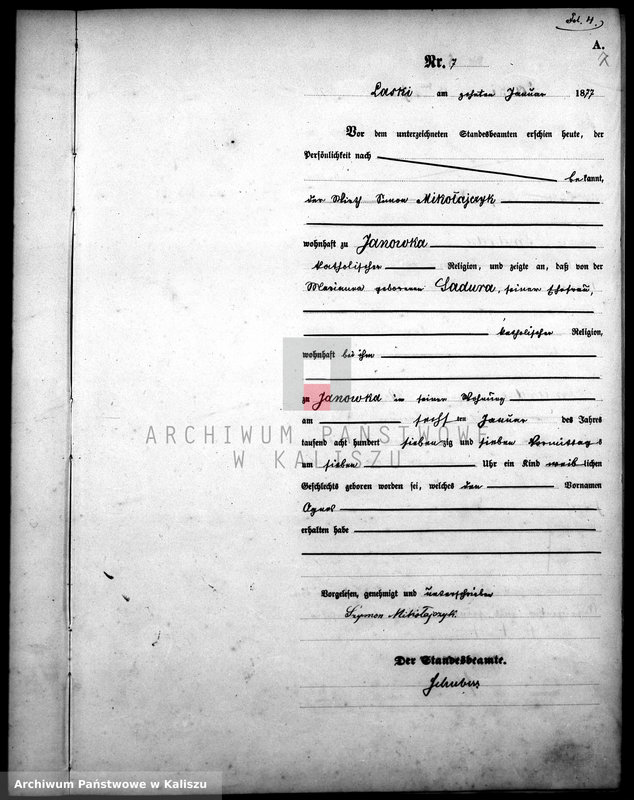 Fol. 4.
A.
7
Nr. 7
Laski am zehnten Januar 1877
Vor dem unterzeichneten Standesbeamten erschien heute, der
Persönlichkeit nach
bekannt,
der Wirth Simon Mikołajczyk
wohnhaft zu Janowka
katholischer Religion, und zeigte an, daß von der
Marianna geborenen Sadura, seiner Ehefrau,
katholischer Religion,
wohnhaft bei ihm
zu Janowka in seiner Wohnung
am sechsten Januar des Jahres
tausend acht hundert siebenzig und sieben Vormittags
um sieben Uhr ein Kind weiblichen
Geschlechts geboren worden sei, welches den Vornamen
Agnes
erhalten habe
Vorgelesen, genehmigt und unterschrieben
Szymon Mikołajczyk.
Der Standesbeamte.
ARCHIWUM PAŃSTWOWE
W KALISZU
Archiwum Państwowe w Kaliszu